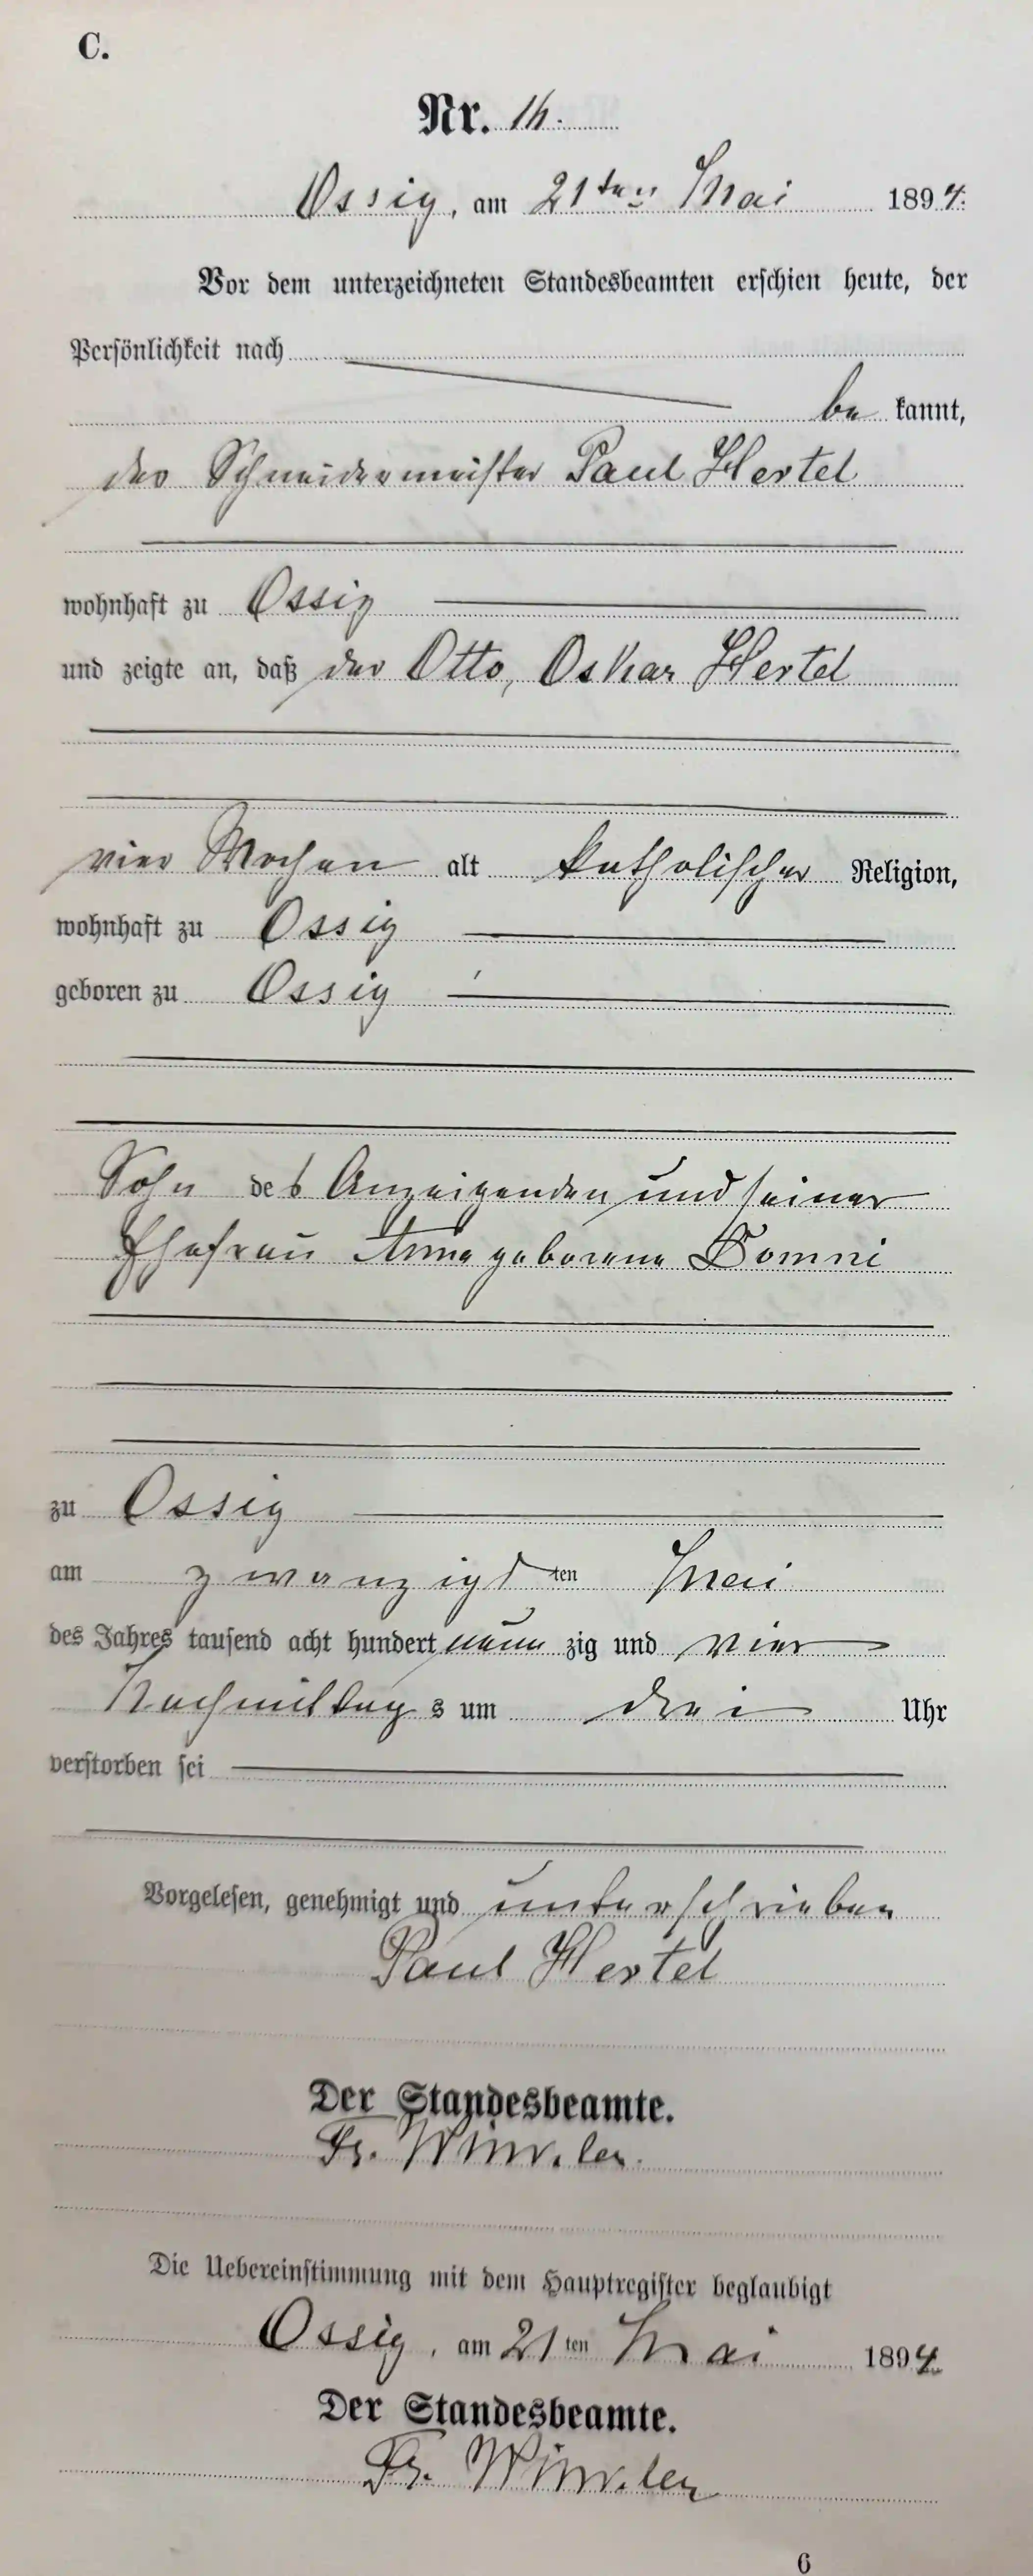 C.
Nr. 16.
Ossig, am 21ten Mai 1894.
Vor dem unterzeichneten Standesbeamten erschien heute, der
Persönlichkeit nach
be kannt,
der Schneidermeister Paul Hertel
wohnhaft zu Ossig
und zeigte an, daß der Otto, Oskar Hertel
vier Wochen alt katholischer Religion,
wohnhaft zu Ossig
geboren zu Ossig
Sohn des Anzeigenden und seiner
Ehefrau Anna geborene Domni
zu Ossig
am zwanzigsten Mai
des Jahres tausend acht hundert neun zig und vier
Nachmittag s um drei Uhr
verstorben sei
Vorgelesen, genehmigt und unterschrieben
Paul Hertel
Der Standesbeamte.
Fr. Winkler.
Die Uebereinstimmung mit dem Hauptregister beglaubigt
Ossig, am 21ten Mai 1894.
Der Standesbeamte.
Fr. Winkler
6